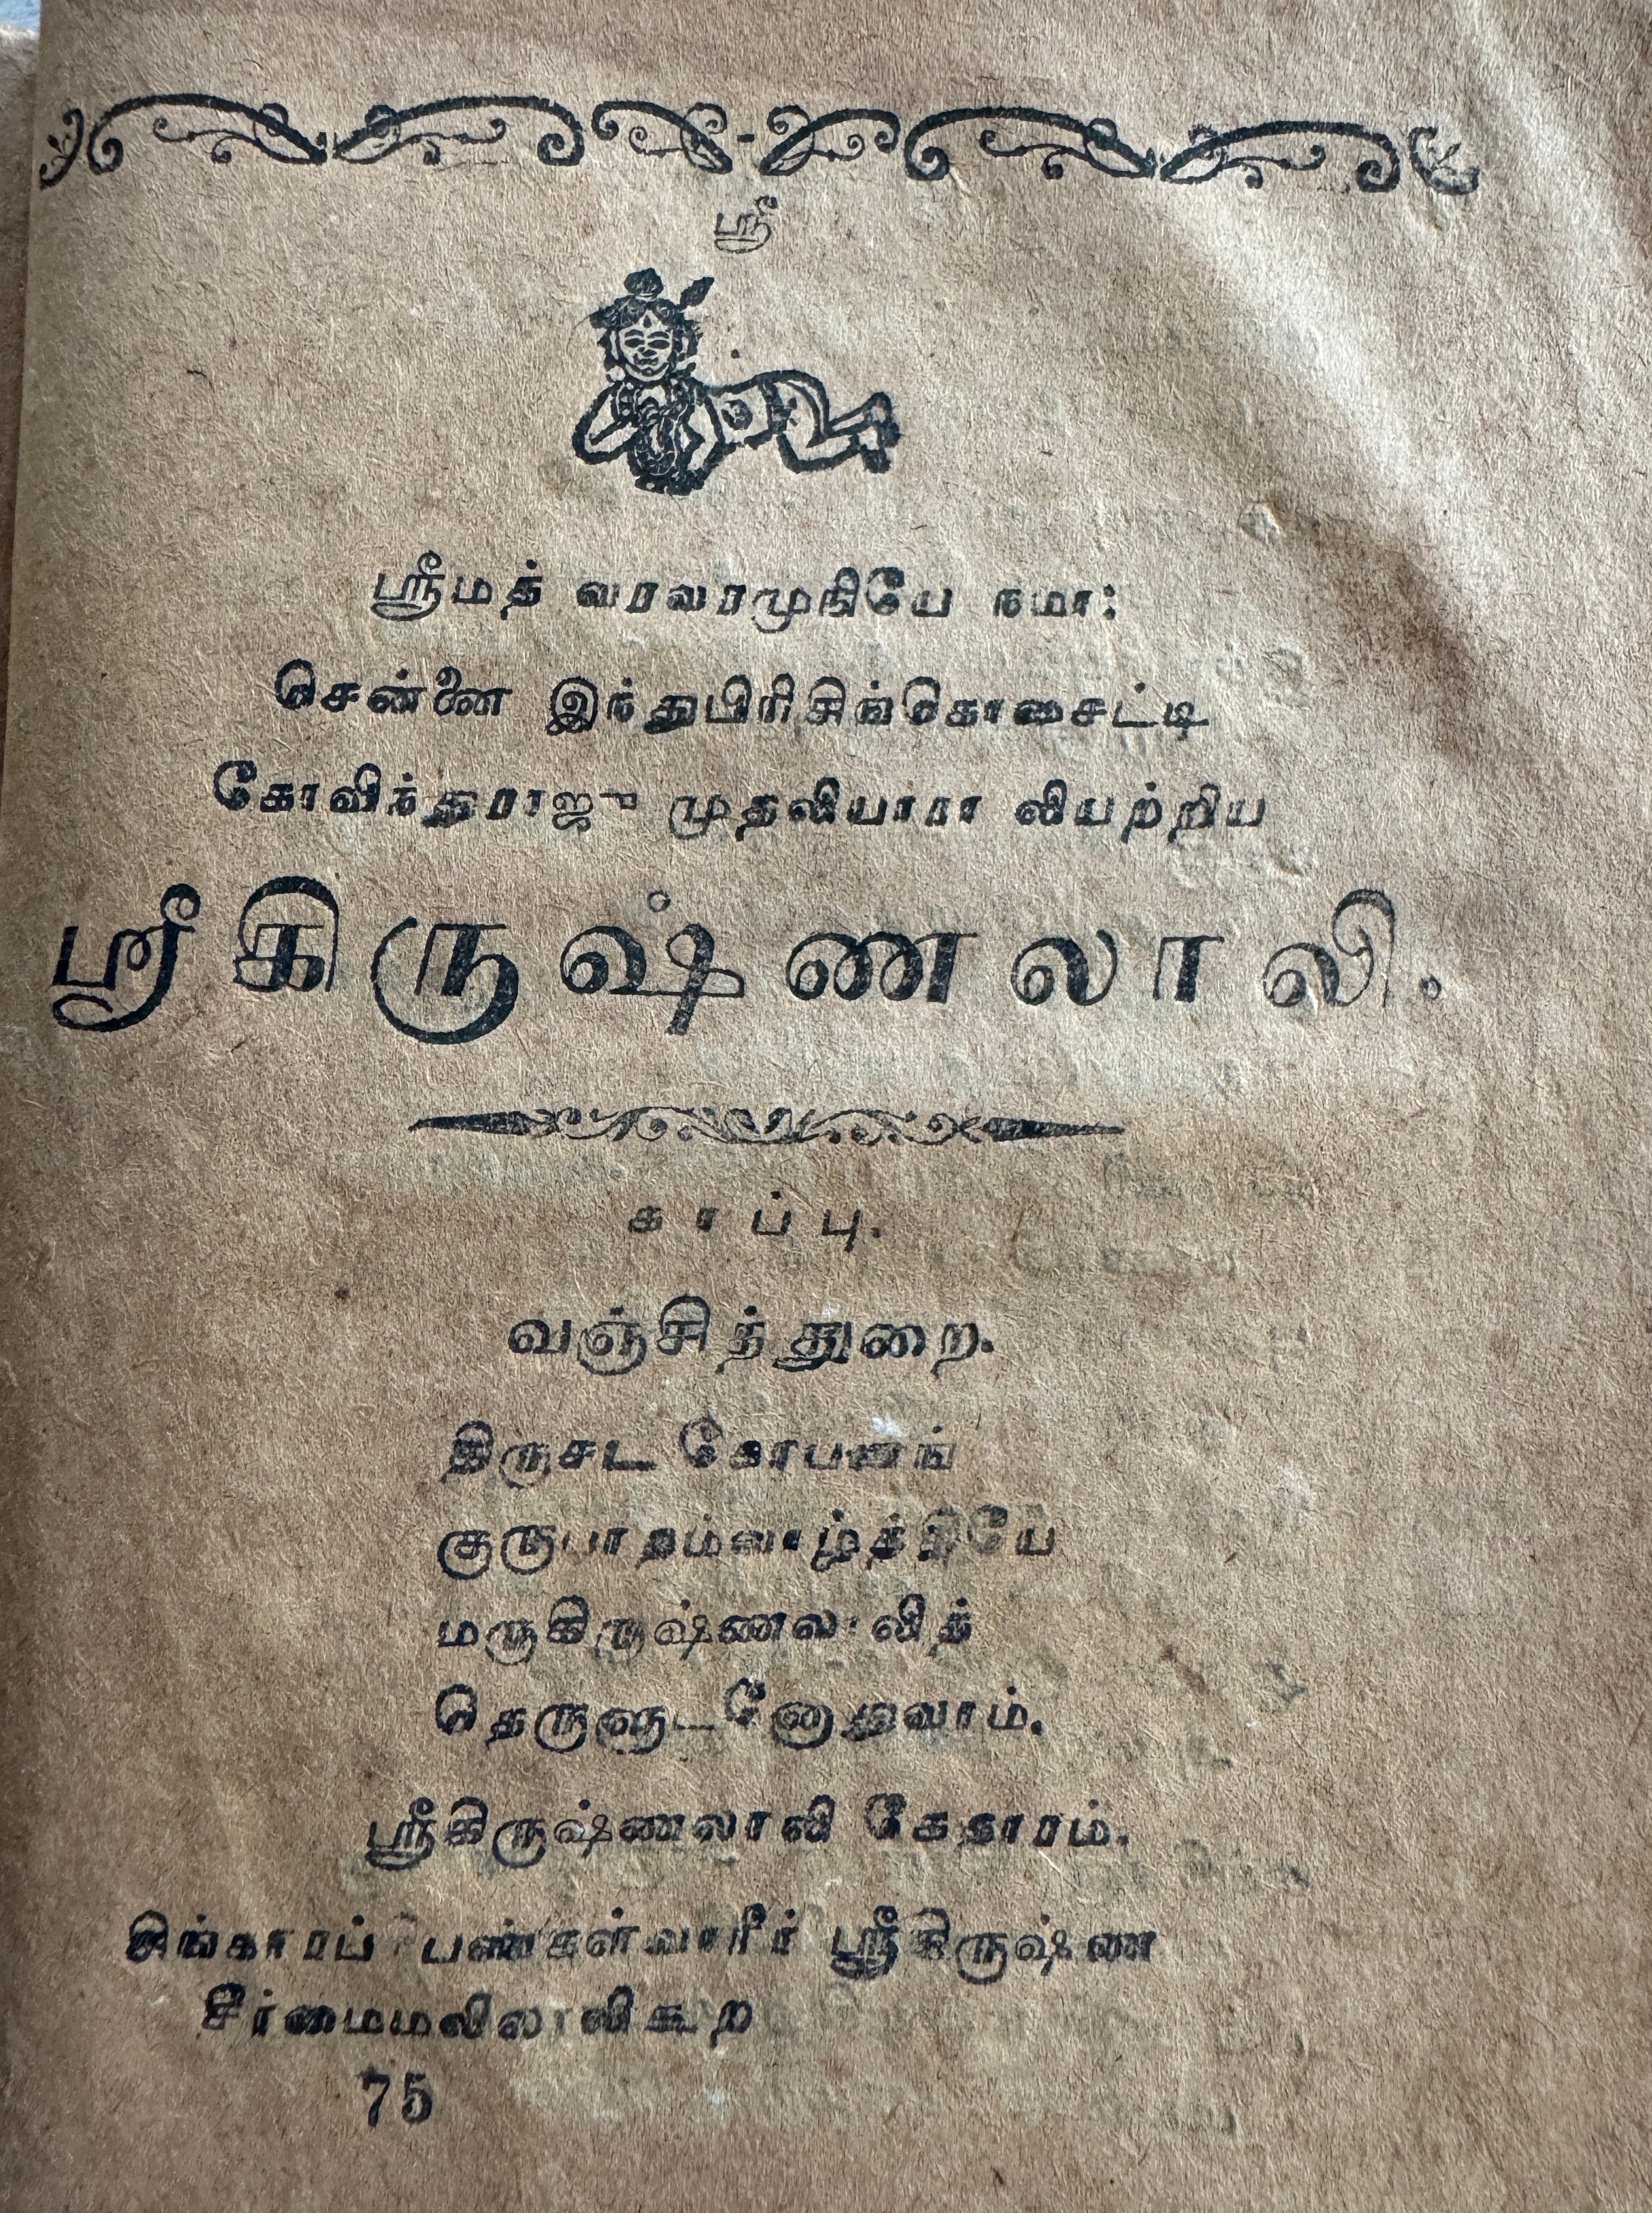 ஸ்ரீ
ஸ்ரீமத் வரவரமுநியே நமா:
சென்னை இந்துபிரிசிங்கொசைட்டி
கோவிந்தராஜு முதலியாரா லியற்றிய
ஸ்ரீகிருஷ்ணலாலி.
காப்பு.
வஞ்சித்துறை.
திருசட கோபனங்
குருபாதம்வாழ்த்தியே
மருகிருஷ்ணலாலித்
தெருளுடனோதுவாம்.
ஸ்ரீகிருஷ்ணலாலி கேதாரம்.
பண்கள்வாரீர் ஸ்ரீகிருஷ்ண
சீர்மைமலிலாலிகூற
75